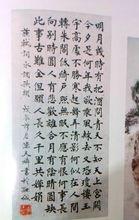 明月幾時有把酒問青天不知天上宮闕
今夕是何年我欲乘風歸去又恐瓊樓玉
宇高處不勝寒起舞弄清影何似在人間
轉朱閣低綺戶照無眠不應有恨何事長
向別時圓人有悲歡離合月有陰晴圓缺
此事古難全但願人長久千里共嬋娟
蘇軾詞水調歌頭